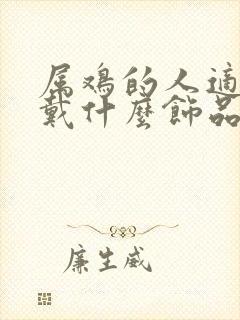 属鸡的人適
戴什麼飾品
廉生威